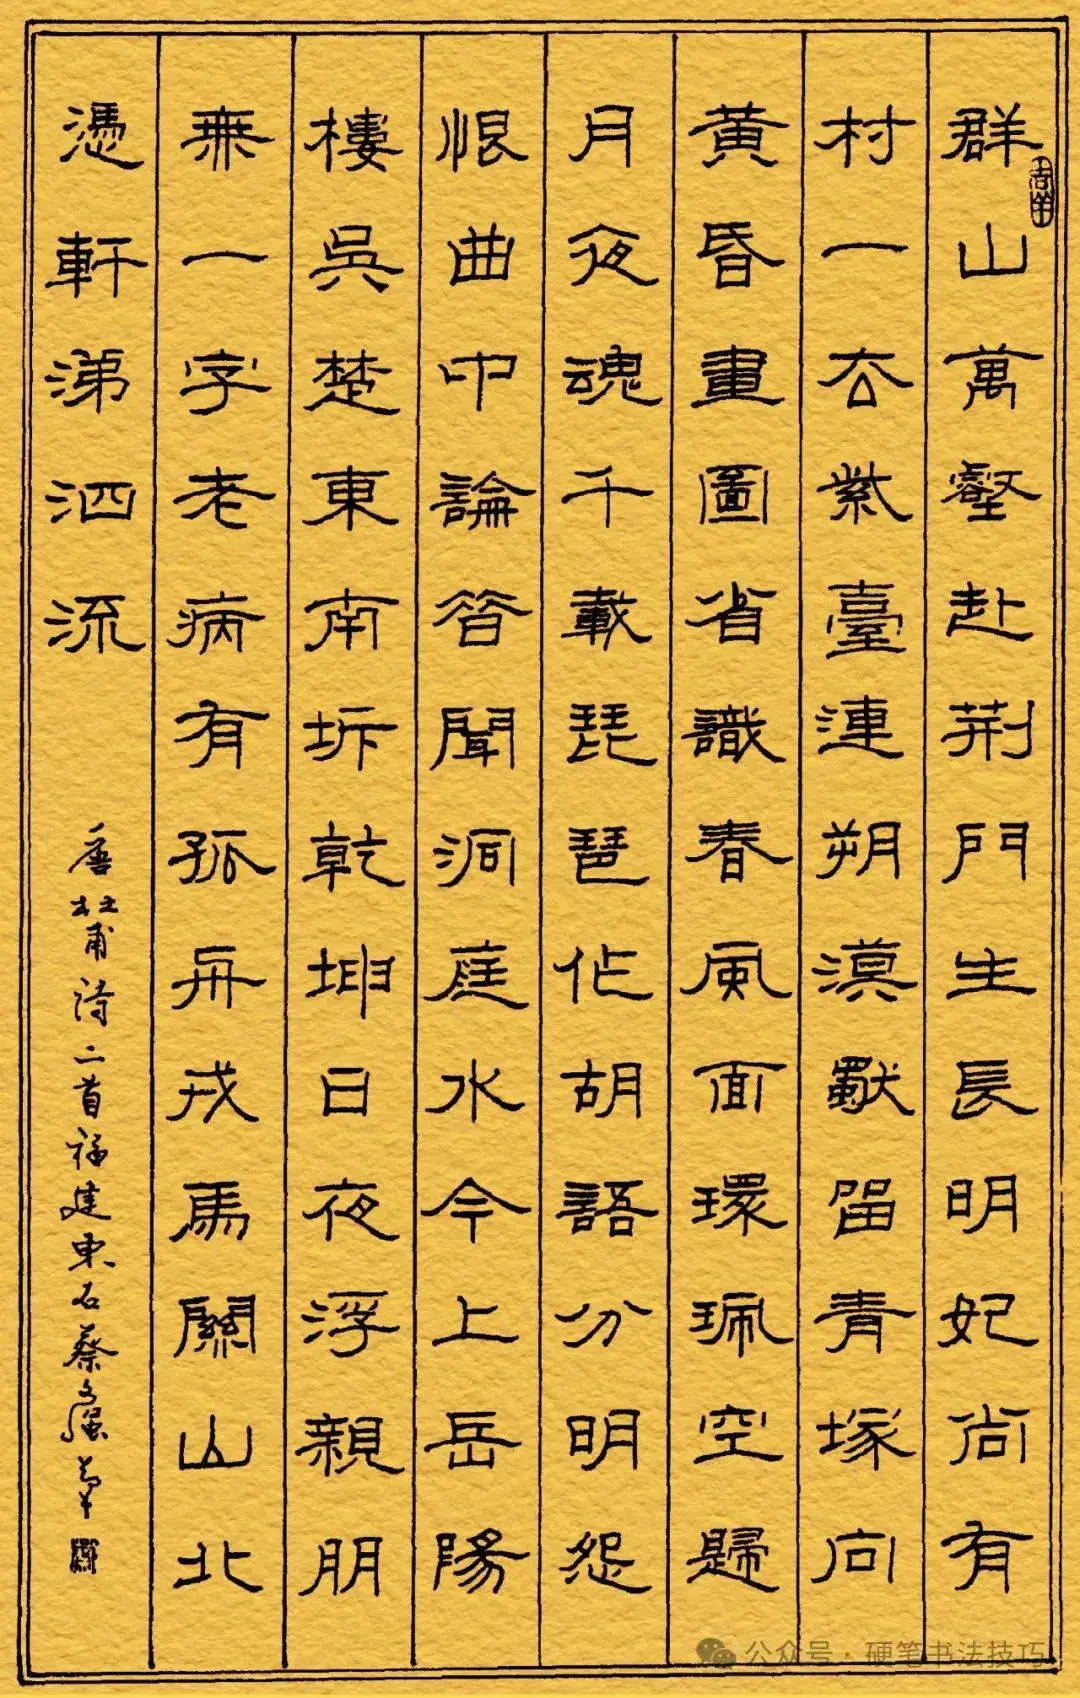 群山萬壑赴荆門生長明妃尚有
村一去紫臺連朔漠獨留青塚向
黄昏畫圖省識春風面環珮空歸
月夜魂千載琵琶作胡語分明怨
恨曲中論昔聞洞庭水今上岳陽
樓吳楚東南坼乾坤日夜浮親朋
無一字老病有孤舟戎馬關山北
憑軒涕泗流
唐杜甫詩二首福建東石蔡
公众号·硬笔书法技巧